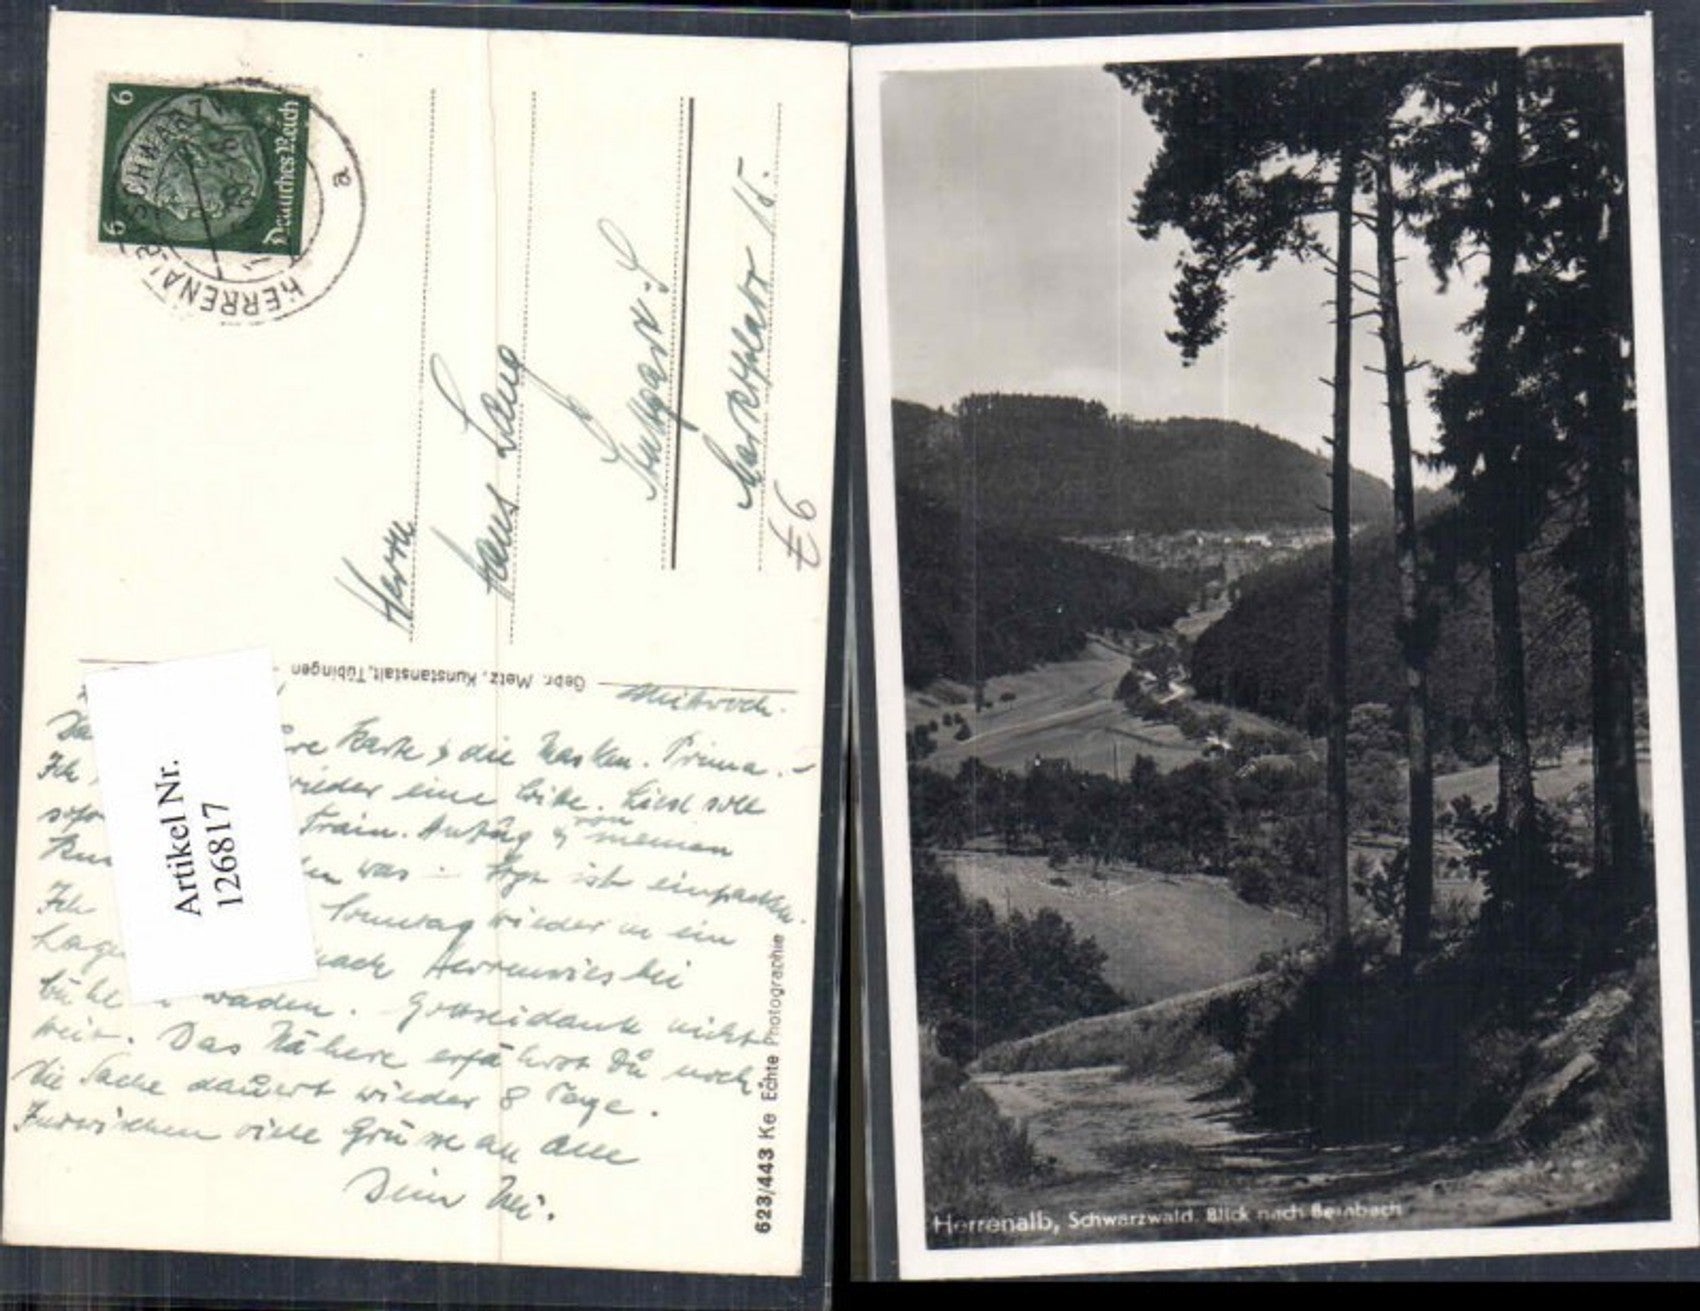 6
6
Deutsches Reich
HERRENALB
SCHWARZW
a
Herrn
Hans Lang
Stuttgart-S
Marktplatz 15.
€6
Gebr. Metz, Kunstanstalt, Tübingen
Mittwoch.
Karte & die Masken. Prima.
Ich wieder eine Bitte. Lied soll
Train. Anfug von meinen
was ist einpacken.
Ich Sonntag wieder in ein
Lager nach Herrenwies bei
Bühl Baden. Gottseidank nicht
weit. Das Nähere erfährst Du noch.
Die Sache dauert wieder 8 Tage.
Inzwischen viele Grüsse an alle
Dein
Artikel Nr.
126817
623/443 Ke Echte Photographie
Herrenalb, Schwarzwald. Blick nach Bernbach